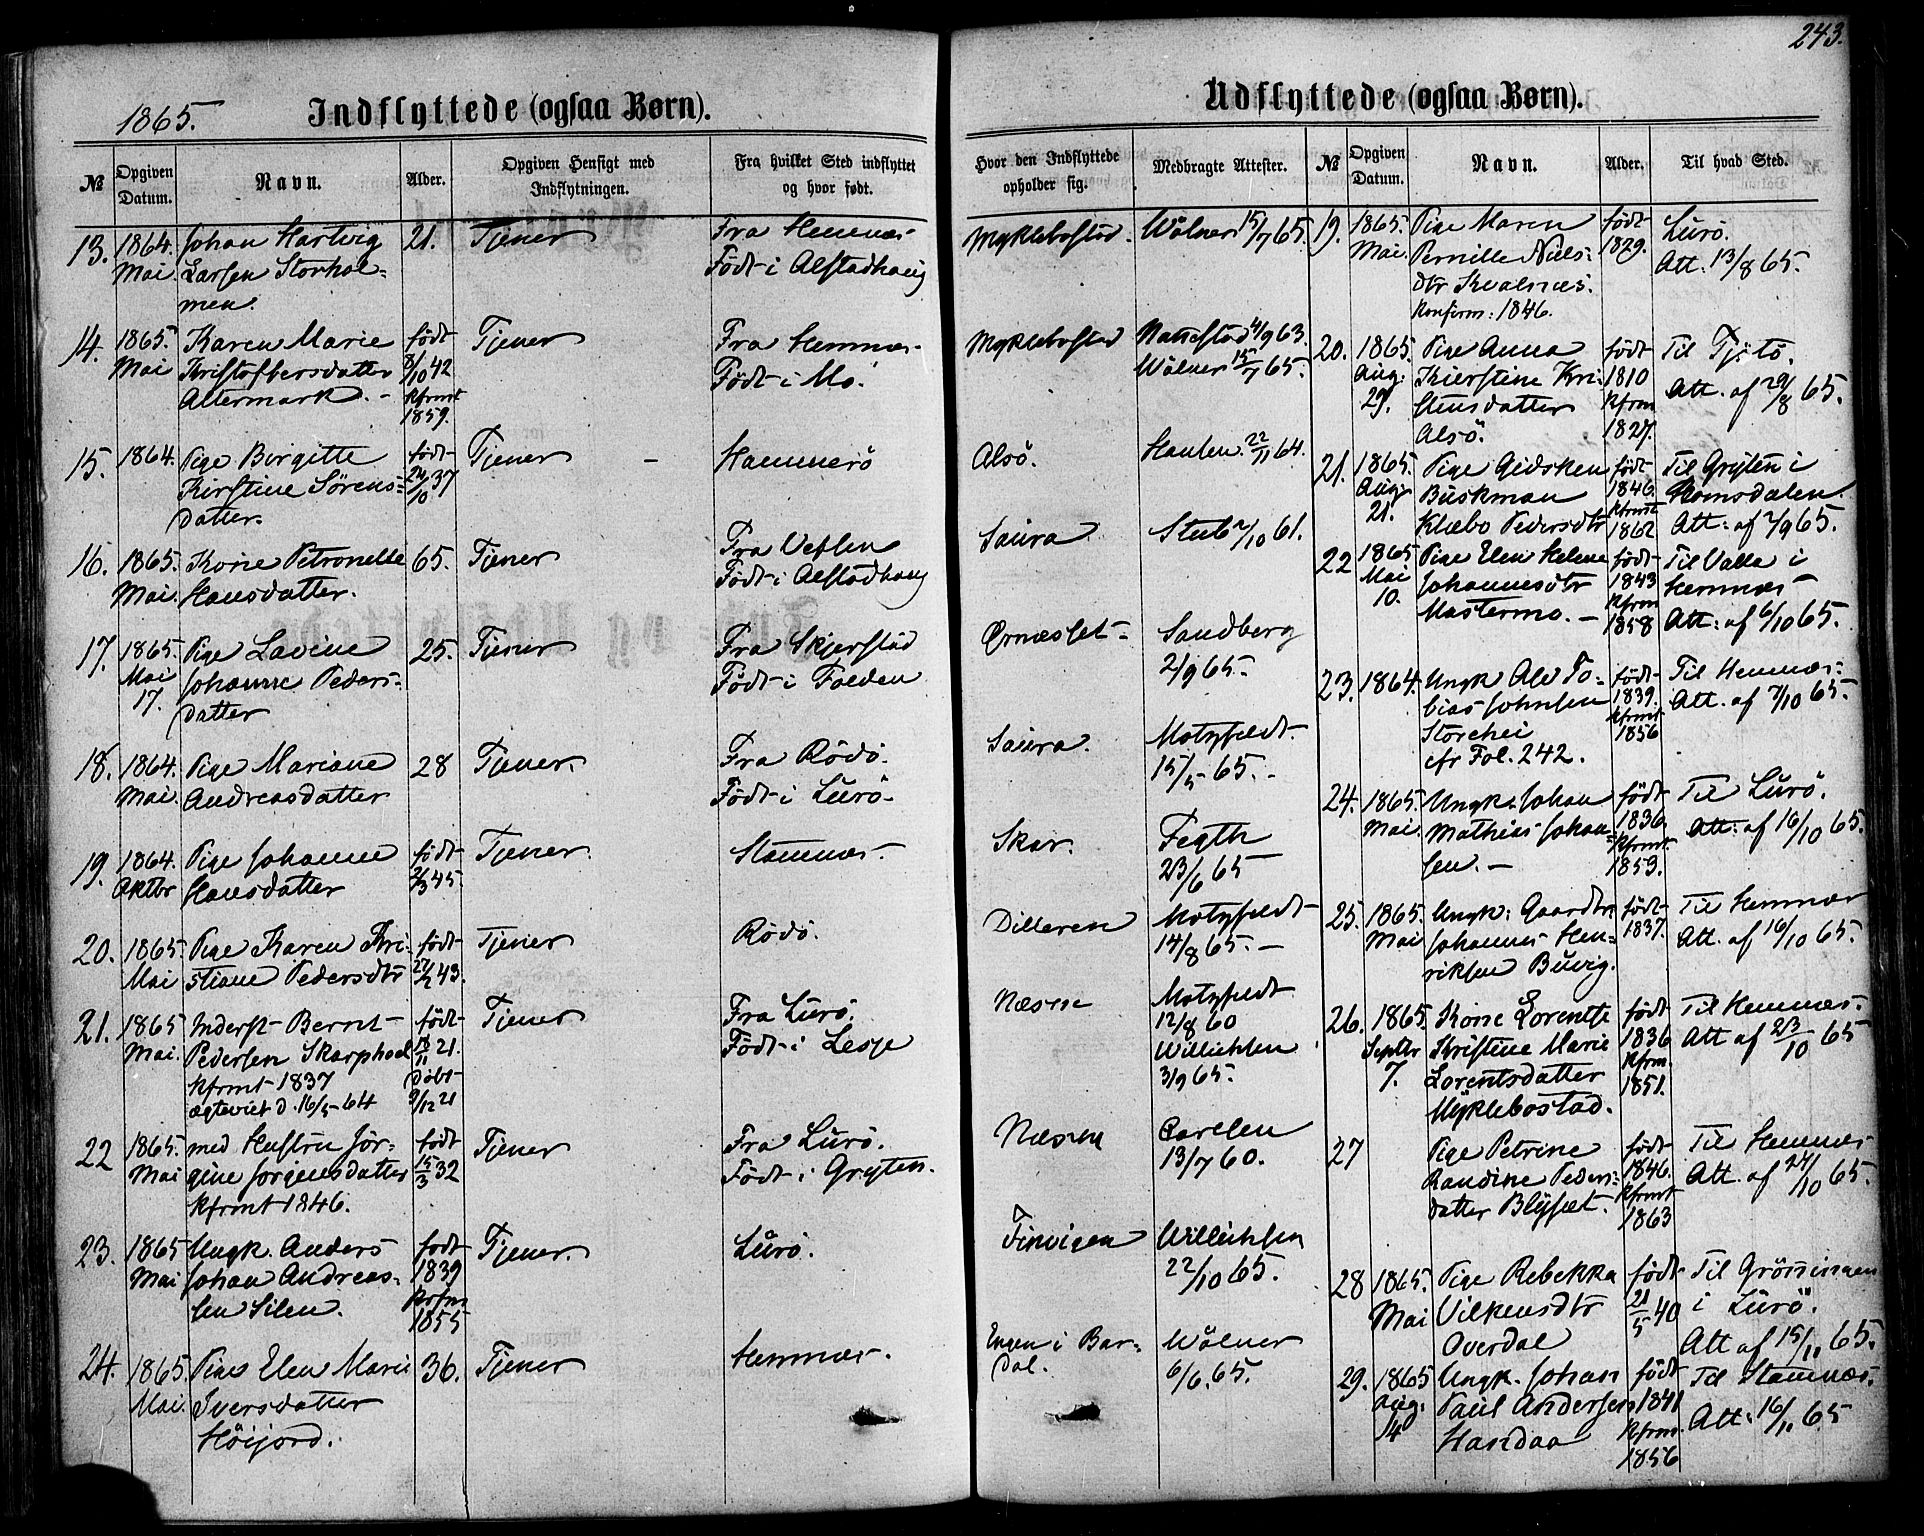 243.
1865.
Indflyttede (ogsaa Børn).
№
Opgiven Datum.
Navn.
Alder.
Opgiven Hensigt med Indflytningen.
Fra hvilket Sted indflyttet og hvor født.
Hvor den Indflyttede opholder sig.
Medbragte Attester.
13. 1864. Johan Hartvig 21. Tjener Fra Hemnæs Myklebostad. Wölner 15/7 65.
Mai Larsen Storhol- Födt i Alstadhoug
men.
14. 1865. Karen Marie født Tjener Fra Hemnæs Myklebostad Nattestad 4/9 63.
Mai Kristoffersdatter 8/10 42 Födt i Mo Wölner 15/7 65.
Altermark. - kfrmt
1859.
15. 1864. Pige Birgitte født Tjener Hammerö Alsö. Hansen 22/11 64.
Kirstine Sörens- 24/10 37
datter.
16. 1865. Kone Petronelle 65. Tjener Fra Vefsen Saura Stub 2/10 61.
Mai. Hansdatter. Födt i Alstadhoug
17. 1865. Pige Lavine 25. Tjener Fra Skjerstad Ørnæsset Sandberg
Mai Johanne Peders- Födt i Folden 2/9 65.
17. datter
18. 1864. Pige Mariane 28 Tjener. Fra Rödö. Saura. Motzfeldt.
Mai. Andreasdatter Födt i Lurö 15/5 65.
19. 1864. Pige Johanne født Tjener. Stamnæs. Skar. Fegth
Oktbr Hansdatter 2/3 45. 23/6 65
20. 1865 Pige Karen Kri- født Tjener Rödö. Dilleren Motzfeldt
Mai stiane Pedersdtr 43. 14/8 65.
21. 1865 Inderst Bernt født Tjener Fra Lurö. Næsne Motzfeldt
Mai. Pedersen 18/11 21. Födt i Lesje 12/8 60
kfrmt 1837 Döbt Willichsen
ægteviet d. 16/5 64 9/12 21 3/9 65.
22 1865. med Hustru Jör- født Tjener Fra Lurö. Næsne Carlsen
Mai gine Jörgensdatter 15/3 32 Födt i Gryten. 13/7 60.
kfrmt 1846.
23. 1865 Ungk. Anders født Tjener. Lurö. Finvigen Willichsen
Mai Johan Andreas- 1839 22/10 65.
sen Silen. kfrm
1855
24. 1865. Pige Elen Marie 36. Tjener Hemnæs. Engen i Bar- Wölner
Mai. Iversdatter dal. 6/6. 65.
Höijord.
Udflyttede (ogsaa Børn).
№
Opgiven Datum.
Navn.
Alder.
Til hvad Sted.
19. 1865. Pige Maren født Lurö.
Mai. Pernille Niels- 1829. Att. 13/8 65.
dtr Kvalnæs.
Konfirm: 1846.
20. 1865. Pige Anna født Til Tjötö.
Aug. Kierstine Kri- 1810 Att. af 29/8 65.
29. stensdatter kfrm
Alsö. 1827.
21. 1865. Pige Gidsken født Til Gryten i
Aug. Buskman 1846. Romsdalen.
21. Klæbo Pedersdtr kfrmt 1862 Att: af 7/9 65.
22 1865 Pige Elen Helene født Til Valla i
Mai Johannesdtr 1843 Hemnæs
10. Mastermo. - kfrm 1858 Att: af 6/10 65.
23. 1864. Ungk Ale To- født Til Hemnæs.
bias Johnsen 1839. Att. af 7/10 65.
Storehei kfrmt
cfr Fol. 242. 1856
24. 1865. Ungk. Johan født Til Lurö.
Mai. Mathias Johan- 1836 Att: af 16/10 65.
sen. - kfrmt
1853.
25. 1865. Ungk: Gaardbr. født Til Hemnæs
Mai Johannes Hen- 1837. Att. af 16/10 65.
riksen Buvig.
26. 1865. Kone Lorentse født Til Hemnæs.
Septbr Kristine Marie 1836 Att af 23/10 65
7. Lorentsdatter kfrm.
Myklebostad. 1851.
27 Pige Petrine født Til Hemnæs
Randine Peders- 1846. Att. af 24/10 65.
datter Blysæt. kfrmt
1863
28 1865. Pige Rebekka født Til Grönningen
Mai Vilkensdtr 21/5 40 i Lurö.
Overdal Att af 15/11 65.
29. 1865 Ungk. Johan født Til Stamnæs.
Aug. Paul Andersen 1841 Att: 16/11 65
14 Handaa kfrm.
1856